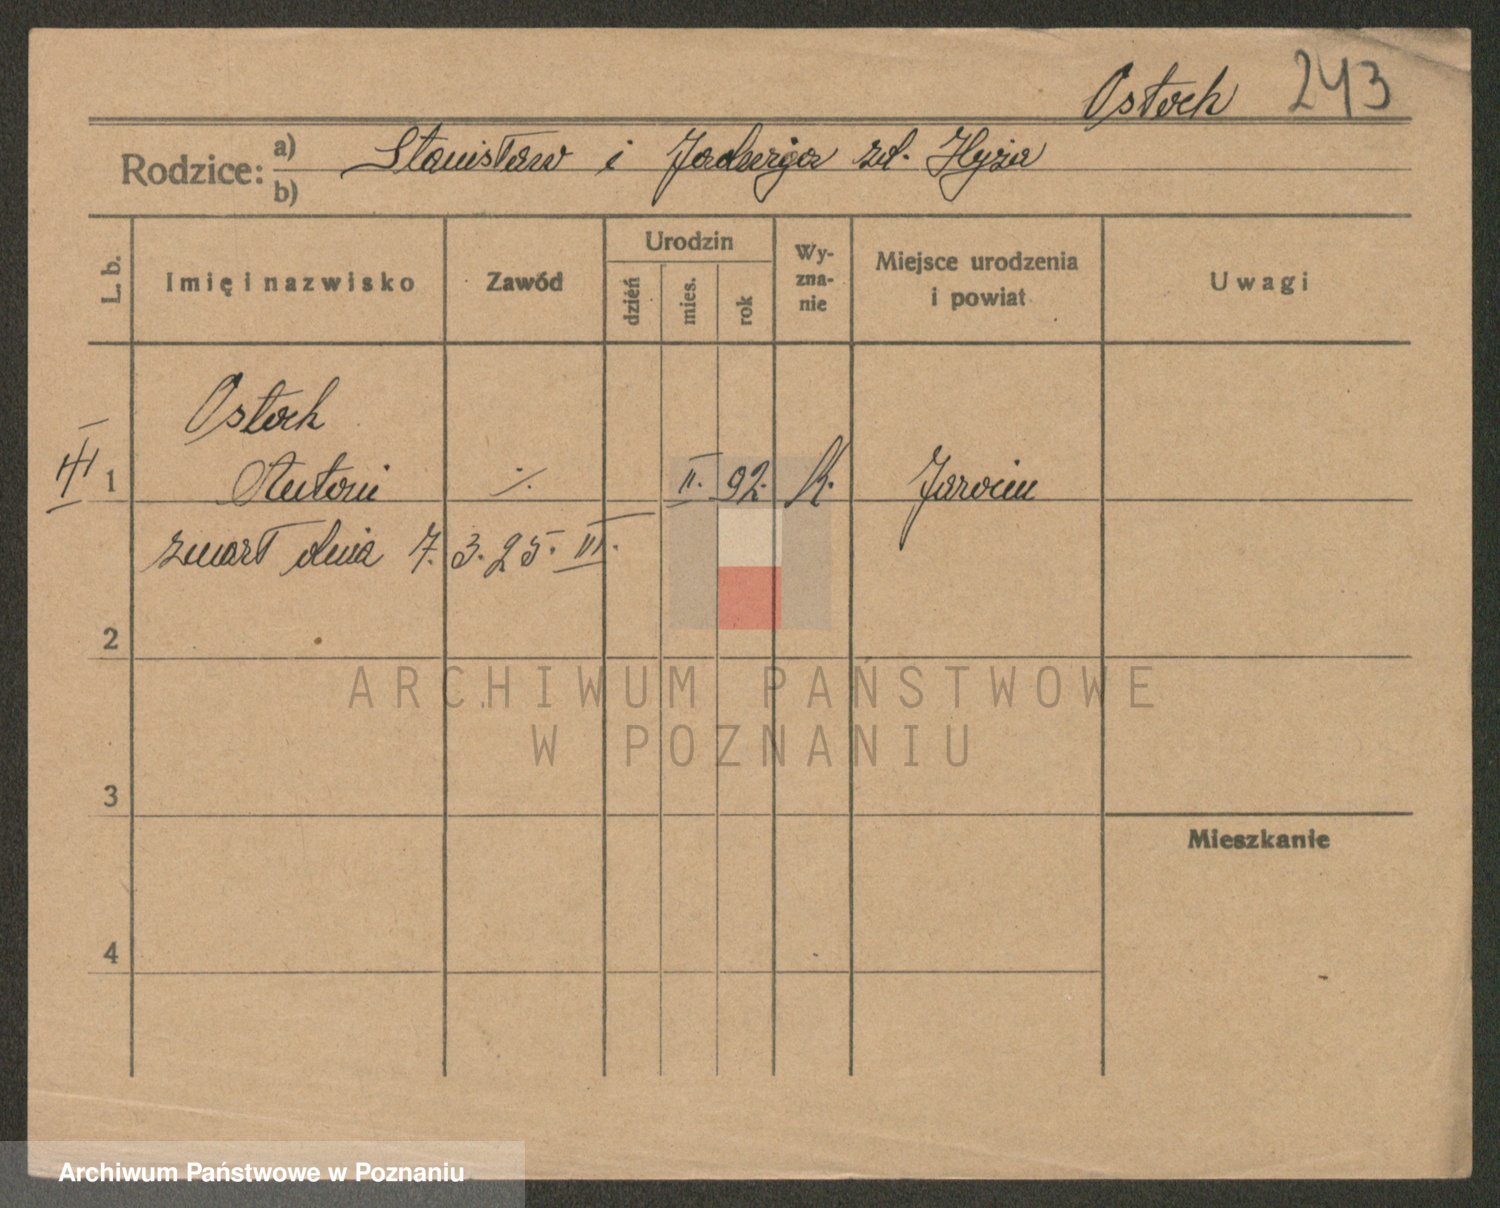 Ostoch 243
Rodzice: a) b) Stanisław i Jadwiga zd. Hyża
L. b. Imię i nazwisko Zawód Urodzin dzień mies. rok Wyznanie Miejsce urodzenia i powiat Uwagi
Ostoch
III 1 Antoni ./. II. 92. k. Jarocin
zmarł dnia 7. 3. 25. III.
2
ARCHIWUM PAŃSTWOWE
W POZNANIU
3
Mieszkanie
4
Archiwum Państwowe w Poznaniu